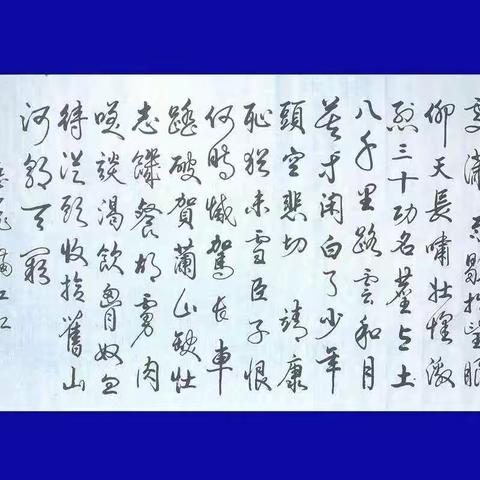 處瀟雨歇抬望眼
仰天長嘯壮懷激
烈三十功名塵与土
八千里路雲和月
莫等闲白了少年
頭空悲切 靖康
恥猶未雪臣子恨
何時滅駕長車
踏破賀蘭山缺壮
志饑餐胡虜肉
笑談渴飲匈奴血
待從頭收拾舊山
河朝天闕
岳飛滿江红